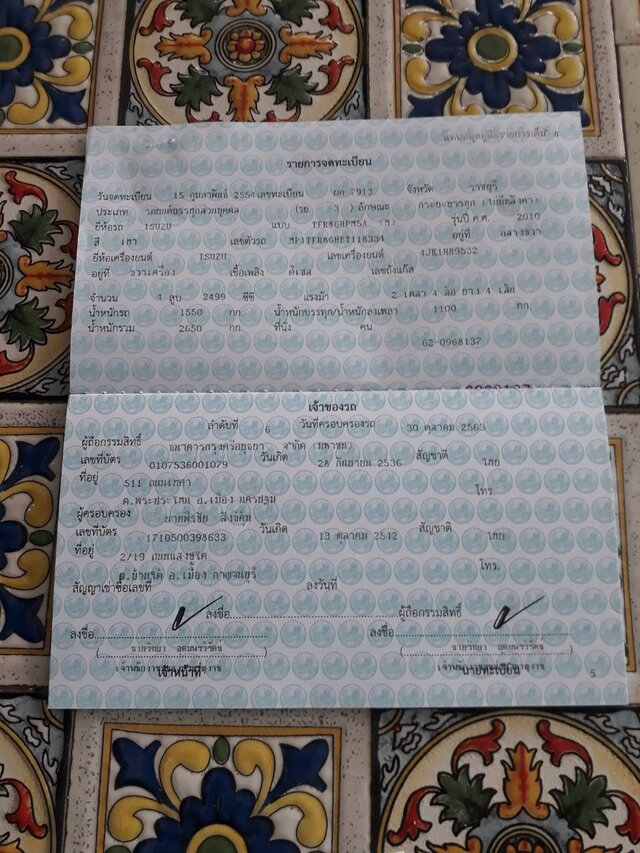 แทนสมุดคู่มือรายการเต็ม 4
รายการจดทะเบียน
วันจดทะเบียน 15 กุมภาพันธ์ 2554 เลขทะเบียน ผก 7913 จังหวัด ราชบุรี
ประเภท รถยนต์บรรทุกส่วนบุคคล (รย. 3 ) ลักษณะ กระบะบรรทุก (ไม่มีหลังคา)
ยี่ห้อรถ ISUZU แบบ TFR86HPM5A (M) รุ่นปี ค.ศ. 2010
สี เทา เลขตัวรถ MP1TFR86HET118334 อยู่ที่ กลางขวา
ยี่ห้อเครื่องยนต์ ISUZU เลขเครื่องยนต์ 4JK1HR9532
อยู่ที่ ขวาเครื่อง เชื้อเพลิง ดีเซล เลขถังแก๊ส
จำนวน 4 สูบ 2499 ซีซี แรงม้า 2 เพลา 4 ล้อ ยาง 4 เส้น
น้ำหนักรถ 1550 กก. น้ำหนักบรรทุก/น้ำหนักลงเพลา 1100 กก.
น้ำหนักรวม 2650 กก. ที่นั่ง คน
62-0968137
เจ้าของรถ
ลำดับที่ 6 วันที่ครอบครองรถ 30 ตุลาคม 2563
ผู้ถือกรรมสิทธิ์ ธนาคารกรุงศรีอยุธยา จำกัด (มหาชน)
เลขที่บัตร 0107536001079 วันเกิด 28 กันยายน 2536 สัญชาติ ไทย
ที่อยู่ 511 ถนนเทศา
ต.พระประโทน อ.เมือง นครปฐม โทร.
ผู้ครอบครอง นายพีรชัย
เลขที่บัตร 1710500398633 วันเกิด 13 ตุลาคม 2542 สัญชาติ ไทย
ที่อยู่ 2/19 ถนนแสงชูโต
ต.บ้านใต้ อ.เมือง กาญจนบุรี โทร.
สัญญาเช่าซื้อเลขที่ ลงวันที่
ลงชื่อ ผู้ถือกรรมสิทธิ์
ลงชื่อ ลงชื่อ
( นายวิทยา ) ( นายวิทยา )
เจ้าหน้าที่ นายทะเบียน
5